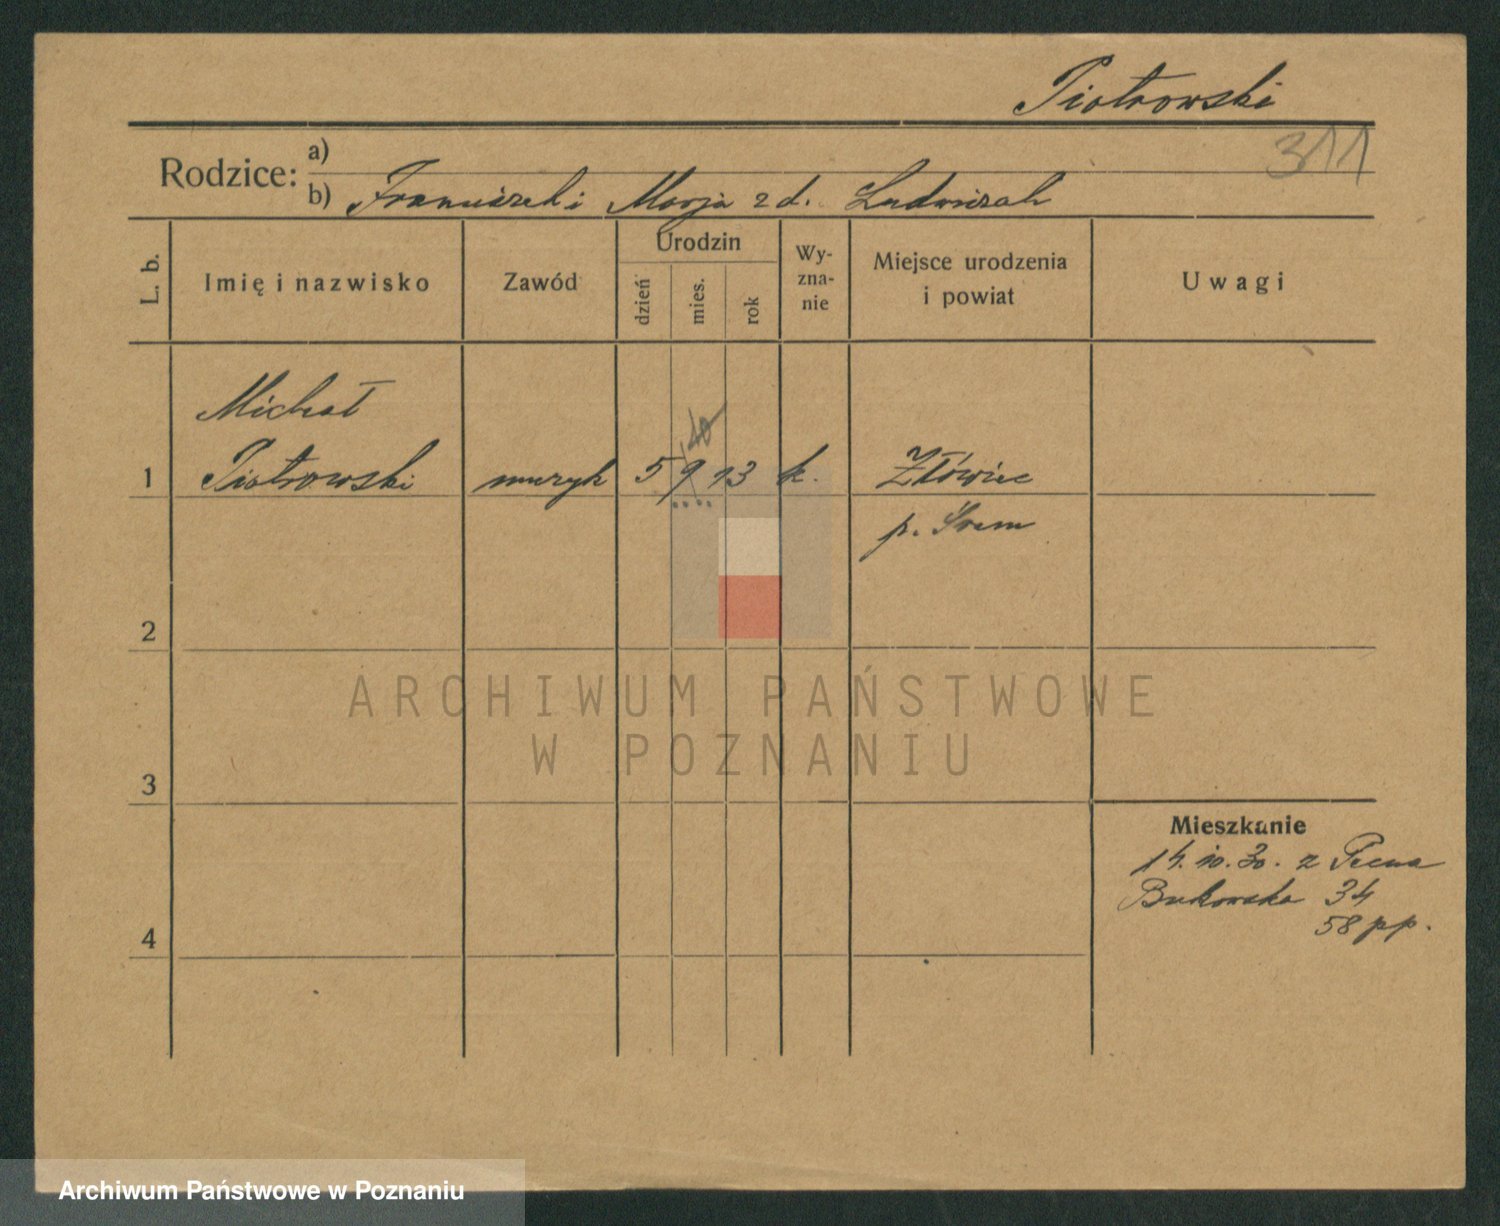 Piotrowski
311
Rodzice: a)
b) Franciszek i Marja z d. Ludwiczak
L. b.
Imię i nazwisko
Zawód
Urodzin
dzień
mies.
rok
Wy-
zna-
nie
Miejsce urodzenia
i powiat
Uwagi
Michał
10
1 Piotrowski muzyk 5 9 13 k. Złówiec
p. Śrem
2
ARCHIWUM PAŃSTWOWE
W POZNANIU
3
Mieszkanie
14. 10. 30. z
Bukowska 34
4
58 pp.
Archiwum Państwowe w Poznaniu